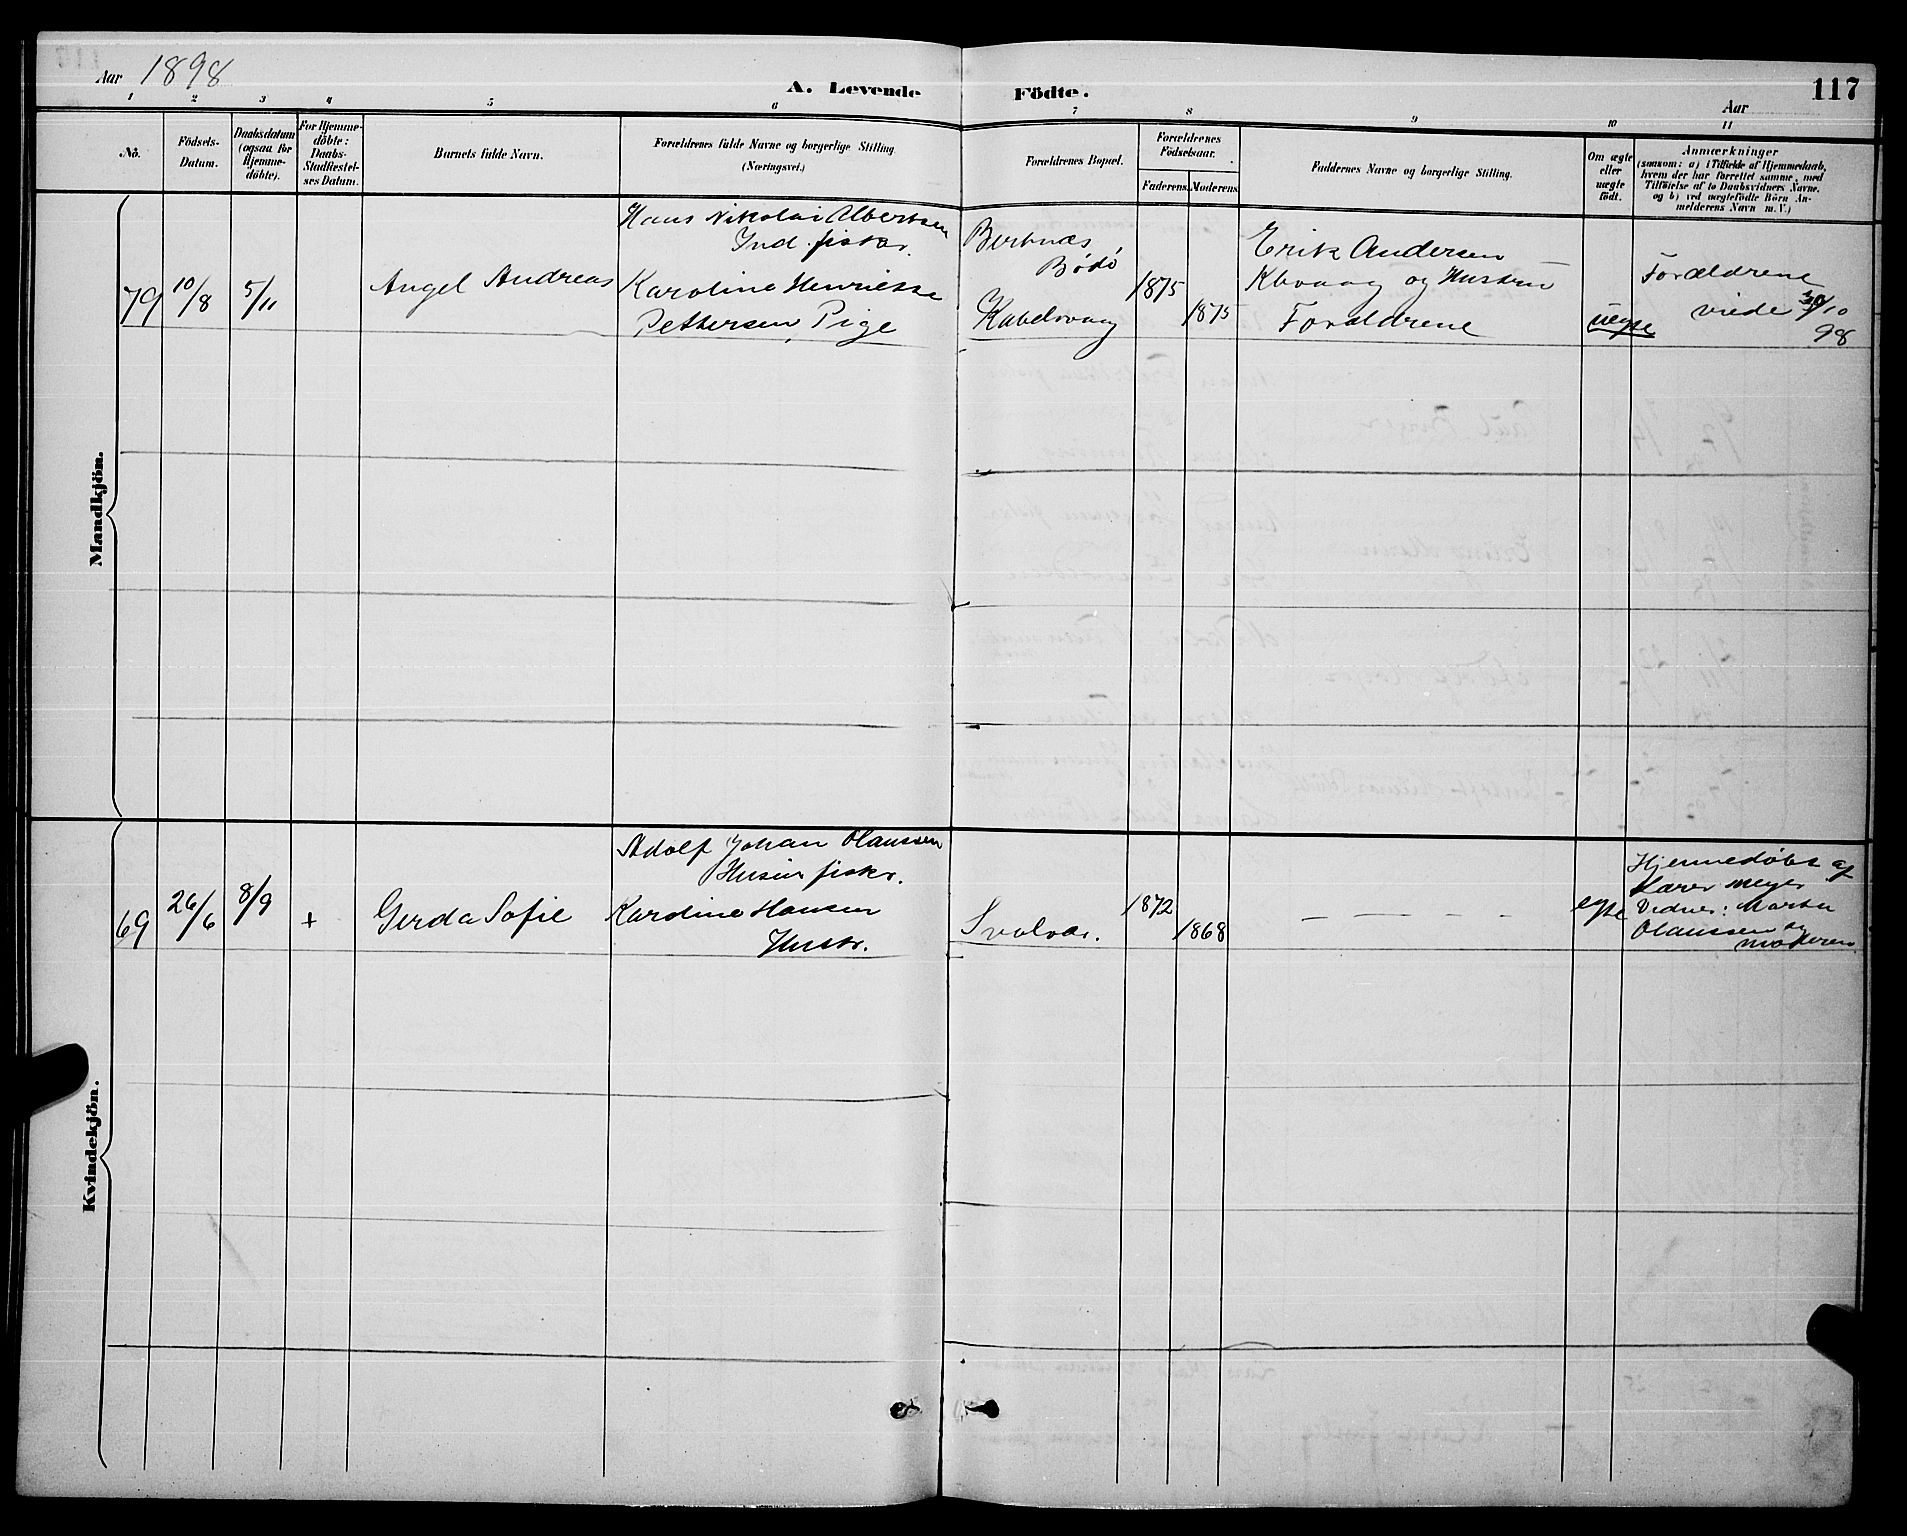 Aar 1898
A. Levende Födte.
117
Aar
1 2 3 4 5 6 7 8 9 10 11
No.
Födsels-Datum.
Daabsdatum (ogsaa for Hjemme-döbte).
For Hjemme-döbte: Daabs-Stadfæstel-ses Datum.
Barnets fulde Navn.
Forældrenes fulde Navne og borgerlige Stilling
(Næringsvei.)
Forældrenes Bopæl.
Forældrenes Födselsaar.
Faderens. Moderens.
Faddernes Navne og borgerlige Stilling.
Om ægte eller uægte födt.
Anmærkninger
(saasom: a) i Tilfælde af Hjemmedaab,
hvem der har forrettet samme, med
Tilföielse af to Daabsvidners Navne.
og b) ved uægtefödte Börn An-
melderens Navn m. V.)
Mandkjön.
79 10/8 5/11
Angel Andreas
Hans Nikolai Albertsen
Ind. fisker.
Karoline Henriette
Pettersen, Pige
Bertnæs,
Bodö
Kabelvaag
1875
1875
Erik Andersen
Kbvaag og Hustru
Forældrene
uegte
Forældrene
viede 30/10
98
Kvindekjön.
69 26/6 8/9 +
Gerda Sofie
Adolf Johan Olaussen
Husm fisker.
Kardine Hansen
Hustr.
Svolvær.
1872
1868
— — — — —
egte
Hjemmedøbt af
Lærer Meyer
Vidner: Martin
Olaussen og
moderen